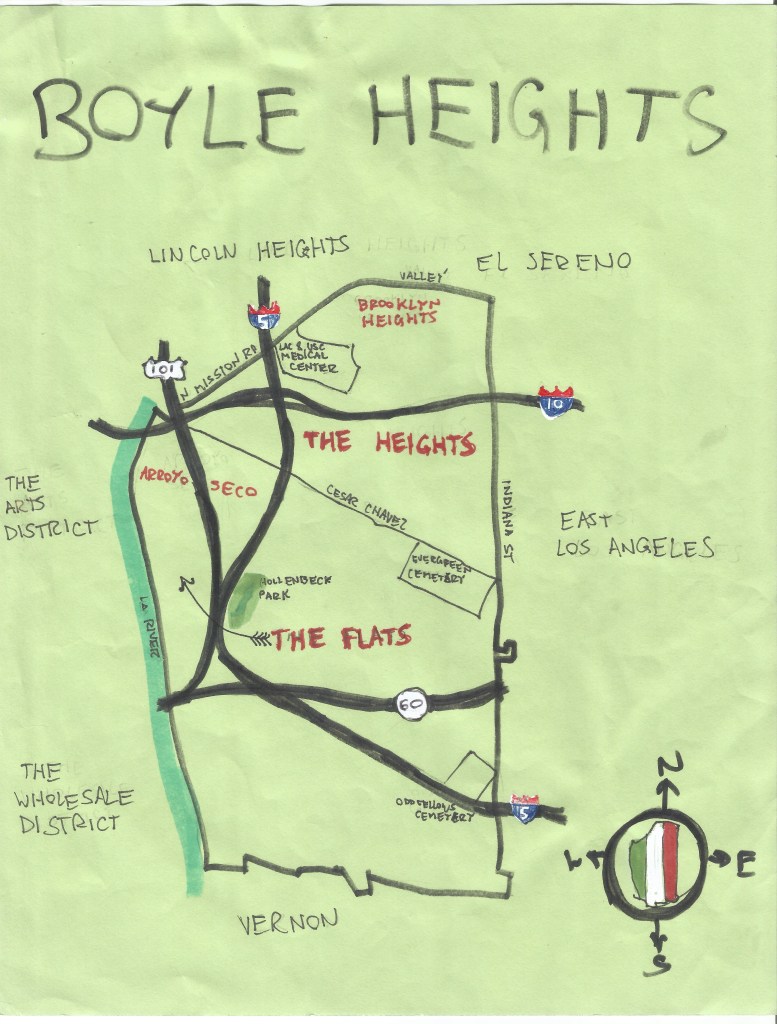 BOYLE HEIGHTS
LINCOLN HEIGHTS
EL SERENO
VALLEY
BROOKLYN
HEIGHTS
5
LAC & USC
MEDICAL
CENTER
101
N MISSION RD
10
THE HEIGHTS
ARROYO SECO
THE
ARTS
DISTRICT
CESAR CHAVEZ
INDIANA ST
EAST
LOS ANGELES
EVERGREEN
CEMETERY
HOLLENBECK
PARK
LA RIVER
THE FLATS
60
THE
WHOLESALE
DISTRICT
ODDFELLOWS
CEMETERY
5
N
W
E
S
VERNON